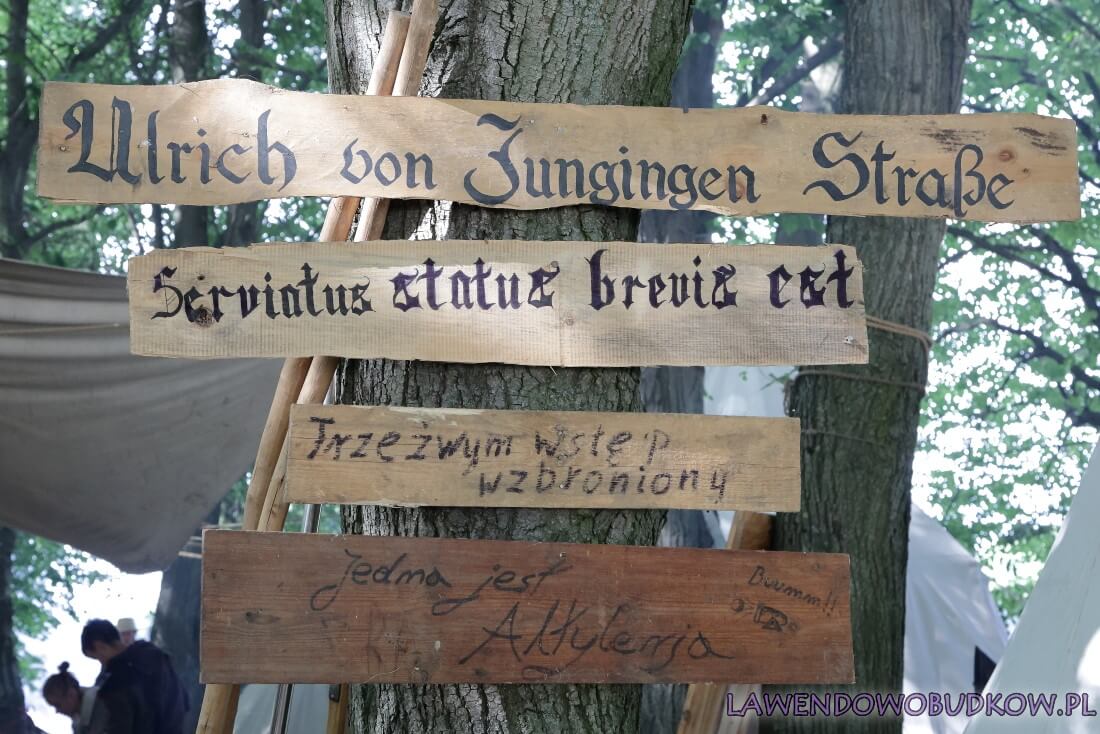 Ulrich von Jungingen Straße
Serviatus status brevis est
Trzeźwym wstęp
wzbroniony
Jedna jest
Altylerja
Buumm!!
LAWENDOWOBUDKOW.PL